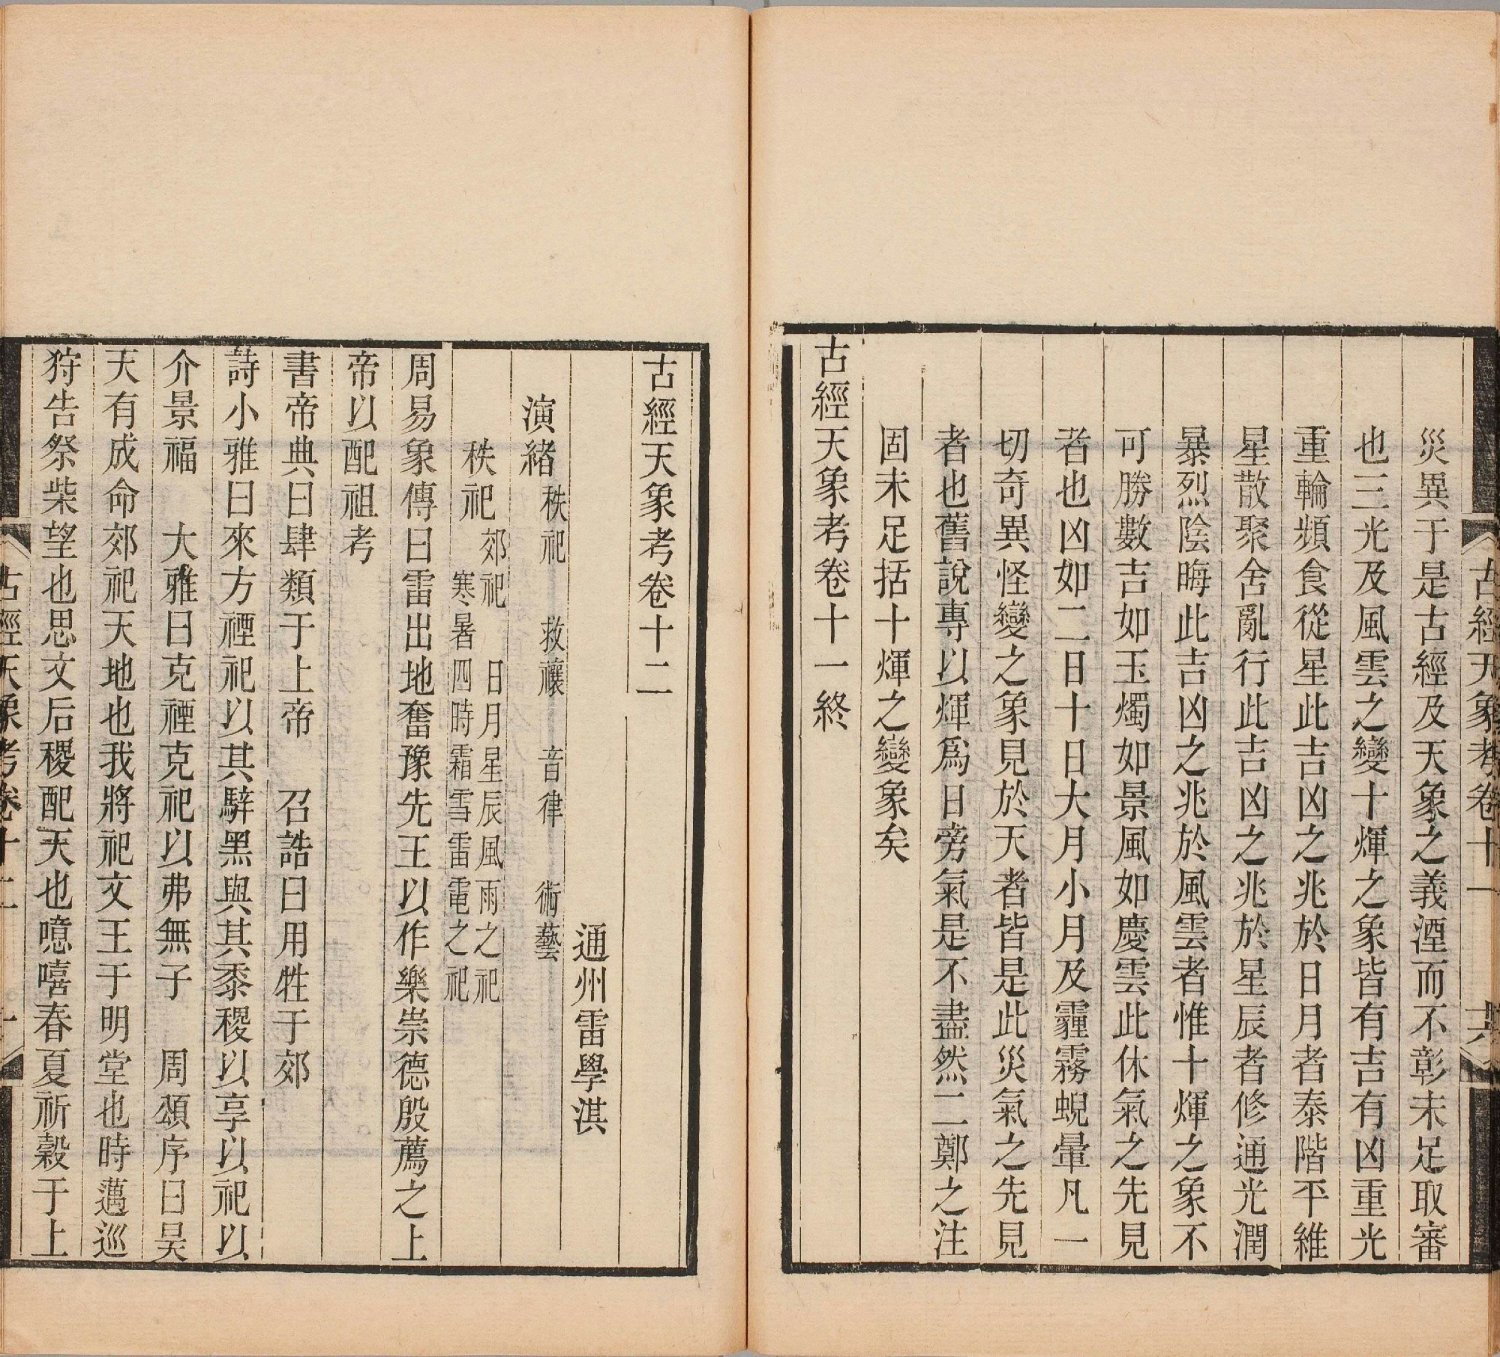 古經天象考卷十一
災異于是古經及天象之義湮而不彰未足取審
也三光及風雲之變十煇之象皆有吉有凶重光
重輪頻食從星此吉凶之兆於日月者泰階平維
星散聚舍亂行此吉凶之兆於星辰者修通光潤
暴烈陰晦此吉凶之兆於風雲者惟十煇之象不
可勝數吉如玉燭如景風如慶雲此休氣之先見
者也凶如二日十日大月小月及霾霧蜺暈凡一
切奇異怪變之象見於天者皆是此災氣之先見
者也舊說專以煇爲日旁氣是不盡然二鄭之注
固未足括十煇之變象矣
古經天象考卷十一終
古經天象考卷十二
通州雷學淇
演緒 秩祀 救禳 音律 術藝
秩祀 郊祀 日月星辰風雨之祀
寒暑四時霜雪雷電之祀
周易象傳曰雷出地奮豫先王以作樂崇德殷薦之上
帝以配祖考
書帝典曰肆類于上帝 召誥曰用牲于郊
詩小雅曰來方禋祀以其騂黑與其黍稷以享以祀以
介景福 大雅曰克禋克祀以弗無子 周頌序曰昊
天有成命郊祀天地也我將祀文王于明堂也時邁巡
狩告祭柴望也思文后稷配天也噫嘻春夏祈穀于上
古經天象考卷十二 一